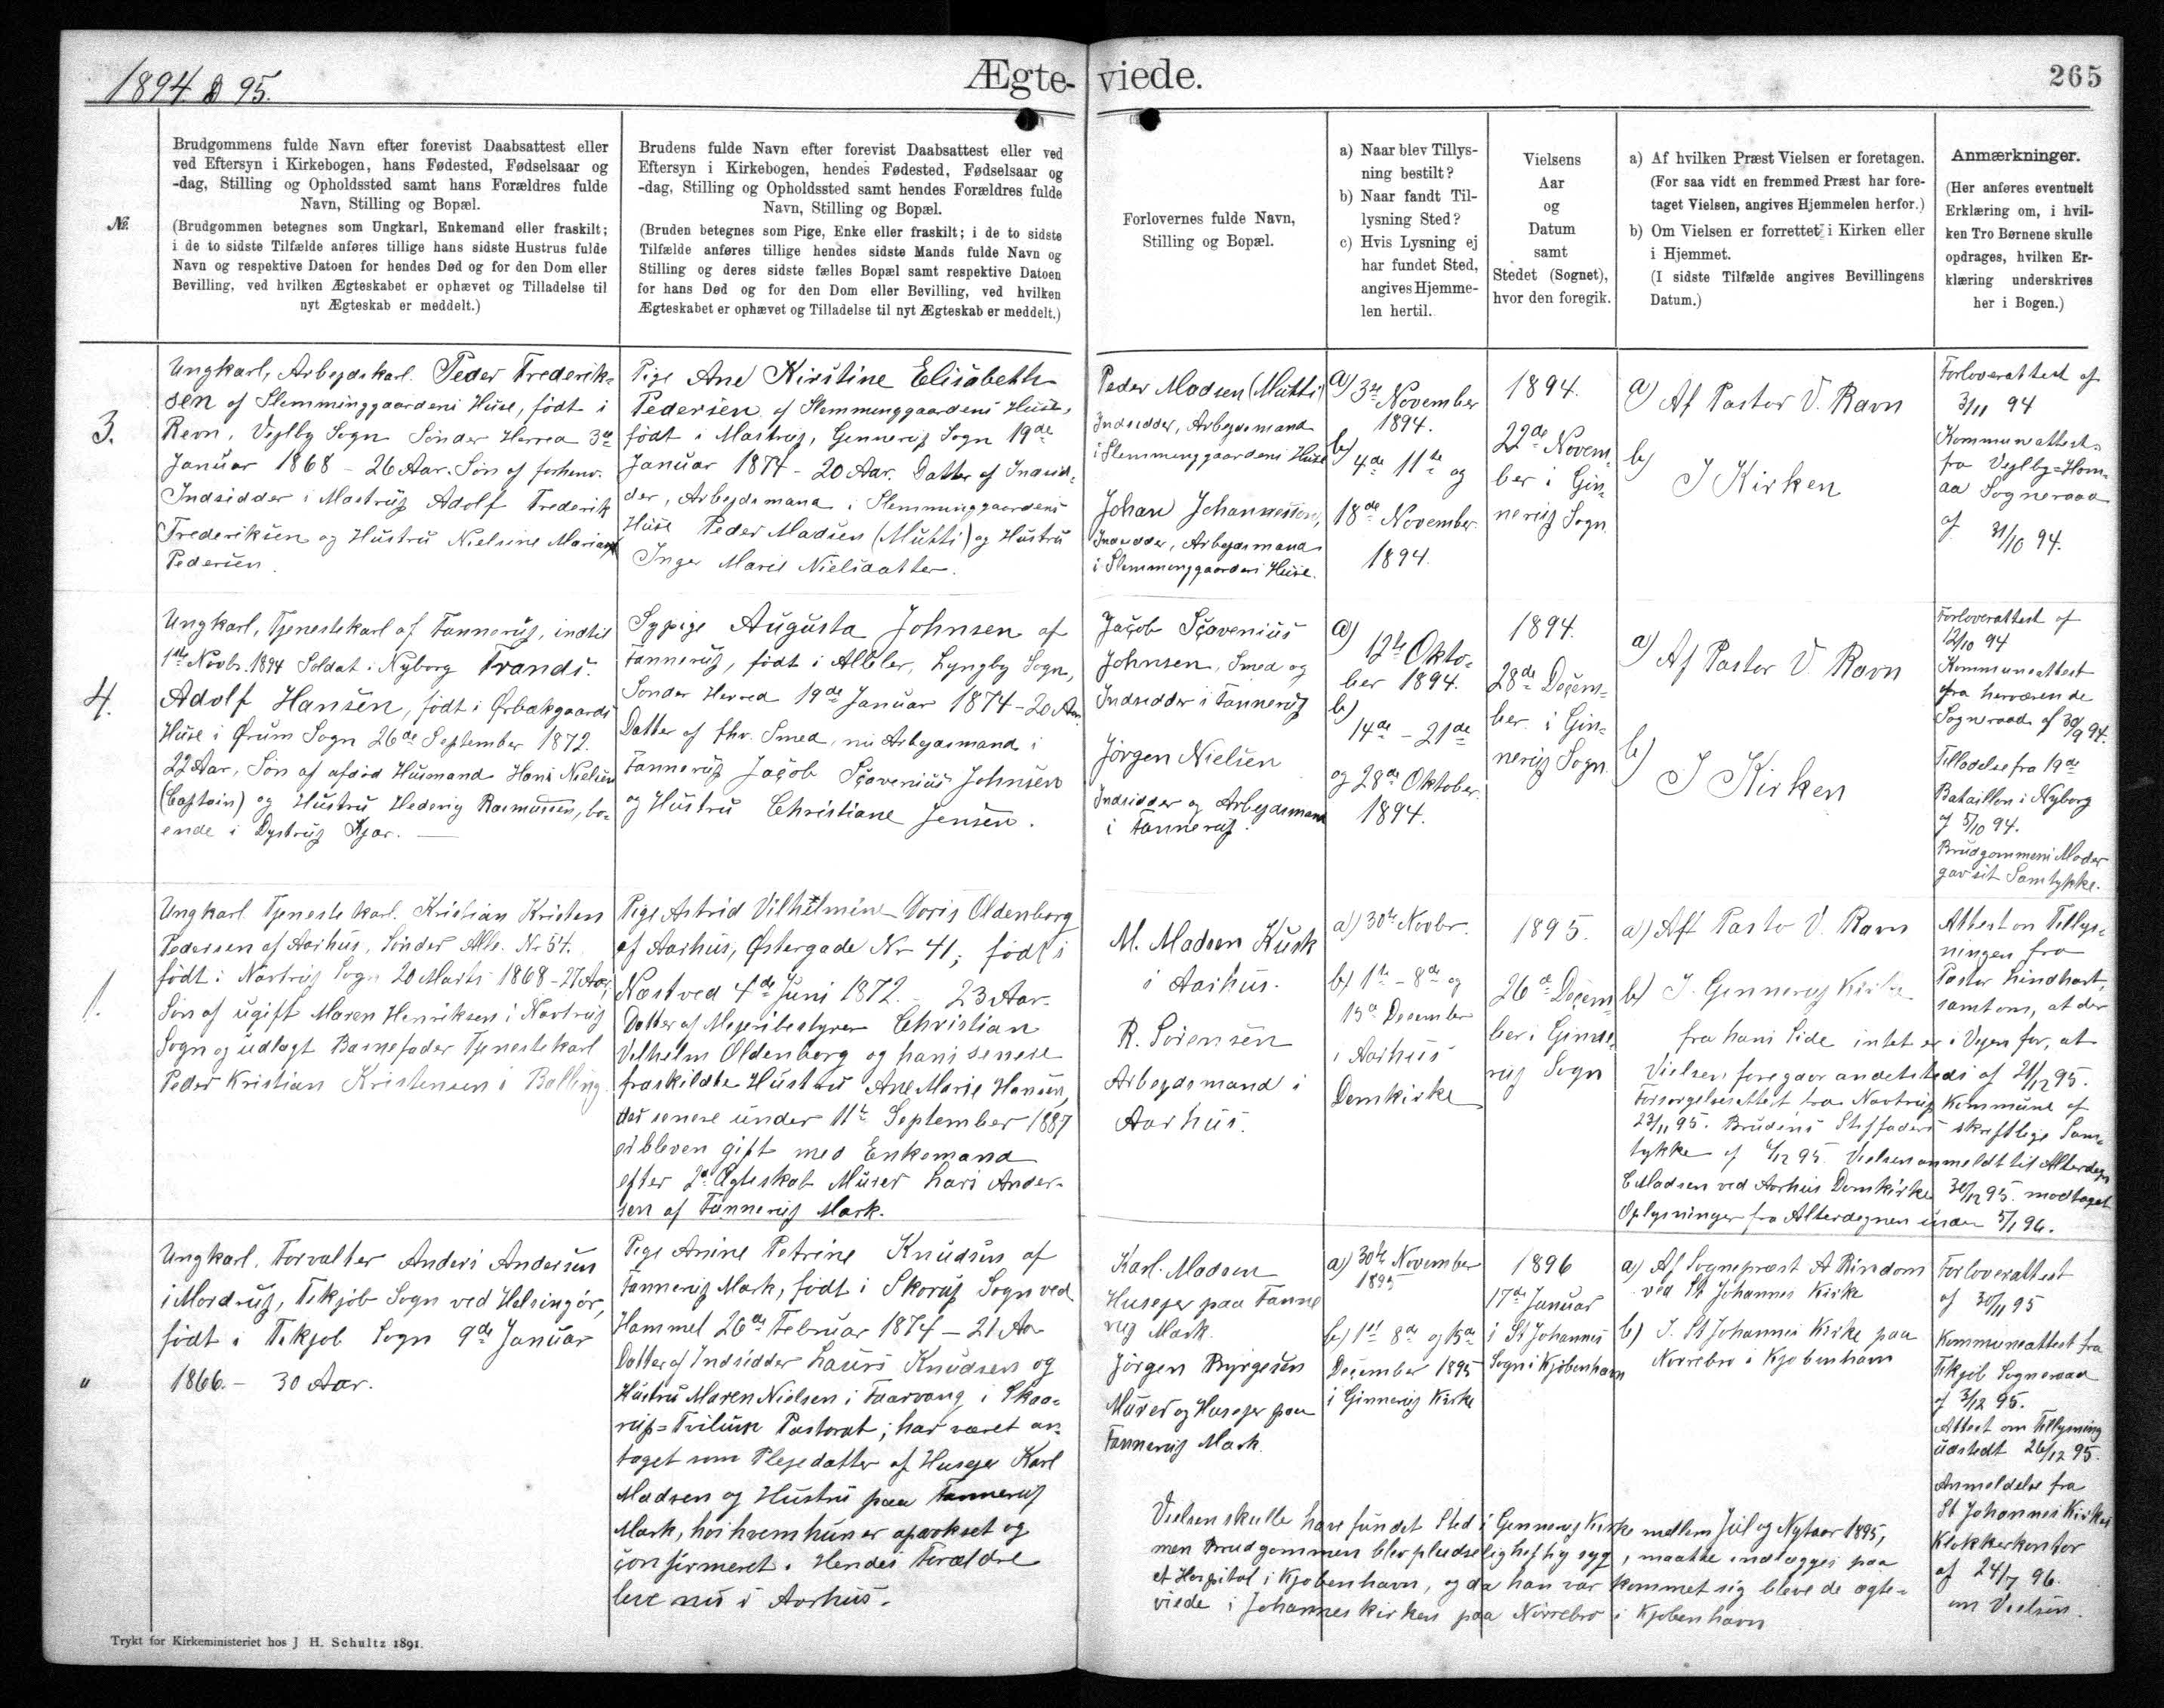 1894 & 95.
Ægte-viede.
265
No.
Brudgommens fulde Navn efter forevist Daabsattest eller
ved Eftersyn i Kirkebogen, hans Fødested, Fødselsaar og
-dag, Stilling og Opholdssted samt hans Forældres fulde
Navn, Stilling og Bopæl.
(Brudgommen betegnes som Ungkarl, Enkemand eller fraskilt;
i de to sidste Tilfælde anføres tillige hans sidste Hustrus fulde
Navn og respektive Datoen for hendes Død og for den Dom eller
Bevilling, ved hvilken Ægteskabet er ophævet og Tilladelse til
nyt Ægteskab er meddelt.)
Brudens fulde Navn efter forevist Daabsattest eller ved
Eftersyn i Kirkebogen, hendes Fødested, Fødselsaar og
-dag, Stilling og Opholdssted samt hendes Forældres fulde
Navn, Stilling og Bopæl.
(Bruden betegnes som Pige, Enke eller fraskilt; i de to sidste
Tilfælde anføres tillige hendes sidste Mands fulde Navn og
Stilling og deres sidste fælles Bopæl samt respektive Datoen
for hans Død og for den Dom eller Bevilling, ved hvilken
Ægteskabet er ophævet og Tilladelse til nyt Ægteskab er meddelt.)
Forlovernes fulde Navn,
Stilling og Bopæl.
a) Naar blev Tillys-
ning bestilt?
b) Naar fandt Til-
lysning Sted?
c) Hvis Lysning ej
har fundet Sted,
angives Hjemme-
len hertil.
Vielsens
Aar
og
Datum
samt
Stedet (Sognet),
hvor den foregik.
a) Af hvilken Præst Vielsen er foretagen.
(For saa vidt en fremmed Præst har fore-
taget Vielsen, angives Hjemmelen herfor.)
b) Om Vielsen er forrettet i Kirken eller
i Hjemmet.
(I sidste Tilfælde angives Bevillingens
Datum.)
Anmærkninger.
(Her anføres eventuelt
Erklæring om, i hvil-
ken Tro Børnene skulle
opdrages, hvilken Er-
klæring underskrives
her i Bogen.)
3.
Ungkarl, Arbejdskarl. Peder Frederik-
sen af Slemminggaardens Huse, født i
Revn, Vejlby Sogn Sønder Herred 3de
Januar 1868 - 26 Aar. Søn af forhenv.
Indsidder i Mastrup Adolf Frederik
Frederiksen og Hustru Nielsine Mariane
Pedersen.
Pige Ane Kirstine Elisabeth
Pedersen af Slemminggaardens Huse,
født i Mastrup, Ginnerup Sogn 19de
Januar 1874 - 20 Aar. Datter af Indsid-
der, Arbejdsmand i Slemminggaardens
Huse Peder Madsen (Mutti) og Hustru
Inger Marie Nielsdatter.
Peder Madsen (Mutti)
Indsidder, Arbejdsmand
i Slemminggaardens Huse
Johan Johannessen,
Indsidder, Arbejdsmand
i Slemminggaardens Huse.
a) 3de November
1894.
b) 4de 11te og
18de November
1894.
1894.
22de Novem-
ber i Gin-
nerup Sogn.
a) Af Pastor V. Ravn
b)
I Kirken
Forloverattest af
3/11 94
Kommuneattest
fra Vejlby-Hom-
aa Sogneraad
af 31/10 94.
4.
Ungkarl, Tjenestekarl af Fannerup, indtil
1ste Novbr. 1894 Soldat i Nyborg Frands
Adolf Hansen, født i Ørbækgaards
Huse i Ørum Sogn 26de September 1872.
22 Aar, Søn af afdød Husmand Hans Nielsen
(Captain) og Hustru Hedevig Rasmussen, bo-
ende i Dystrup Kjær.
Sypige Augusta Johnsen af
Fannerup, født i Albler, Lyngby Sogn,
Sønder Herred 19de Januar 1874 - 20 Aar.
Datter af fhv. Smed, nu Arbejdsmand i
Fannerup Jacob Scavenius Johnsen
og Hustru Christiane Jensen.
Jacob Scavenius
Johnsen, Smed og
Indsidder i Fannerup
Jørgen Nielsen
Indsidder og Arbejdsmand
i Fannerup.
a) 12te Okto-
ber 1894.
b)
14de - 21de
og 28de Oktober
1894.
1894.
28de Decem-
ber i Gin-
nerup Sogn.
a) Af Pastor V. Ravn
b)
I Kirken
Forloverattest af
12/10 94
Kommuneattest
fra herværende
Sogneraad af 30/9 94.
Tilladelse fra 19de
Bataillon i Nyborg
af 5/10 94.
Brudgommens Moder
gav sit Samtykke.
1.
Ungkarl Tjenestekarl. Kristian Kristen
Pedersen af Aarhus, Sønder Alle. Nr 54.
født i Navtrup Sogn 20 Marts 1868 - 27 Aar,
Søn af ugift Maren Henriksen i Navtrup
Sogn og udlagt Barnefader Tjenestekarl
Peder Kristian Kristensen i Balling.
Pige Astrid Vilhelmine Doris Oldenborg
af Aarhus, Østergade Nr 41, født i
Næstved 4de Juni 1872. - 23 Aar.
Datter af Mejeribestyrer Christian
Vilhelm Oldenborg og hans senere
fraskildte Hustru Ane Marie Hansen,
der senere under 11te September 1887
er bleven gift med Enkemand
efter 2det Ægteskab Murer Lars Ander-
sen af Fannerup Mark.
M. Madsen Kusk
i Aarhus.
R. Sørensen
Arbejdsmand i
Aarhus.
a) 30te Novbr.
b) 1ste - 8de og
15de December
i Aarhus
Domkirke
1895.
26de Decem-
ber i Ginne-
rup Sogn
a) Aft Pasto V. Ravn
b) I Ginnerup Kirke
Attest om Tillys-
ningen fra
Pastor Lindhart,
samt om, at der
fra hans Side intet er i Vejen for, at
Vielsen foregaar andetsteds af 21/12 95.
Forsørgelsesattest fra Navtrup Kommune af
23/11 95. Brudens Stiffaders skriftlige Sam-
tykke af 6/12 95. Vielsen anmeldt til Alterdegn
C Madsen ved Aarhus Domkirke 30/12 95. modtaget
Oplysninger fra Alterdegnen under 5/1 96.
"
Ungkarl, Forvalter Anders Andersen
i Mørdrup, Tikjøb Sogn ved Helsingør,
født i Tikjøb Sogn 9de Januar
1866. - 30 Aar.
Pige Anine Petrine Knudsen af
Fannerup Mark, født i Skorup Sogn ved
Hammel 26de Februar 1874 - 21 Aar
Datter af Indsidder Laurs Knudsen og
Hustru Maren Nielsen i Faarvang i Skaa-
rup=Tvilum Pastorat; har været an-
taget som Plejedatter af Husejer Karl
Madsen og Hustru paa Fannerup
Mark, hos hvem hun er opvokset og
confirmeret. Hendes Forældre
leve nu i Aarhus.
Karl Madsen
Husejer paa Fanne
rup Mark.
Jørgen Byrgesen
Murer og Husejer paa
Fannerup Mark.
a) 30te November
1895
b) 1ste 8de og 15de
December 1895
i Ginnerup Kirke
1896
17de Januar
i St Johannes
Sogn i Kjøbenhavn
a) Af Sognepræst A Rindom
ved St Johannes Kirke
b) I. St Johannes Kirke paa
Nørrebro i Kjøbenhavn
Forloverattest
af 30/11 95
Kommuneattest fra
Tikjøb Sogneraad
af 3/12 95.
Attest om Tillysning
udstedt 26/12 95.
Anmeldelse fra
St Johannes Kirkes
Klokkerkontor
af 24/7 96.
om Vielsen.
Vielsen skulle have fundet Sted i Ginnerup Kirke mellem Jul og Nytaar 1895,
men Brudgommen blev pludselig heftig syg, maatte indlægges paa
et Hospital i Kjøbenhavn, og da han var kommet sig bleve de ægte-
viede i Johanneskirken paa Nørrebro i Kjøbenhavn
Trykt for Kirkeministeriet hos J. H. Schultz 1891.